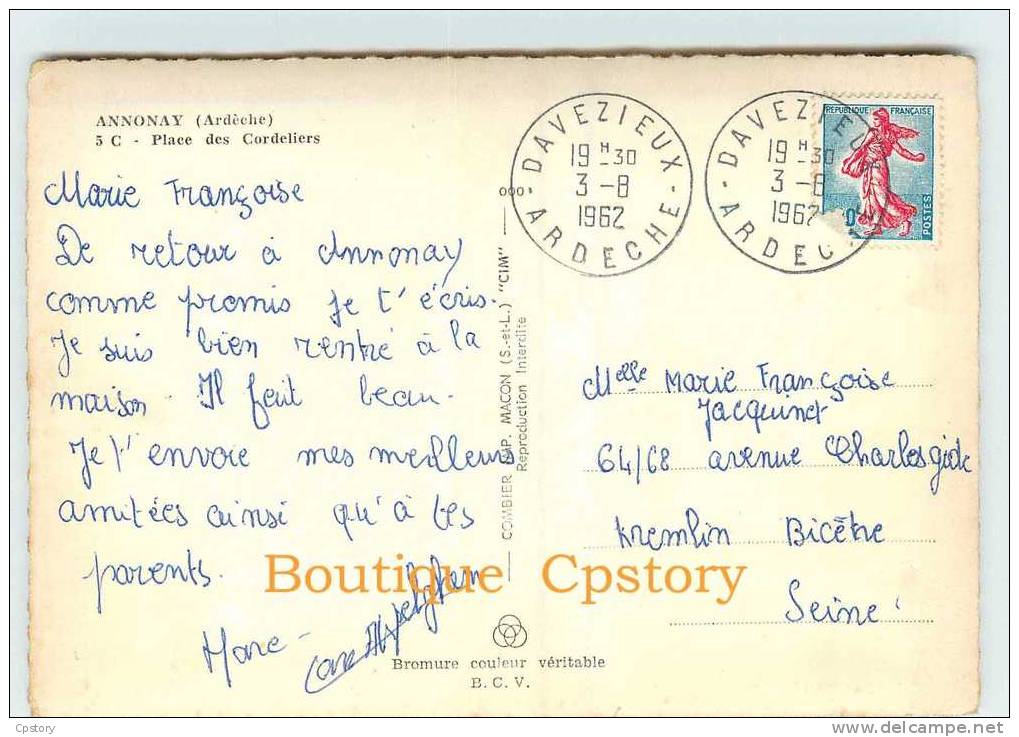 ANNONAY (Ardèche)
5 C - Place des Cordeliers
Marie Françoise
De retour à Annonay
comme promis je t'écris.
Je suis bien rentré à la
maison. Il fait beau.
Je t'envoie mes meilleurs
amitées ainsi qu'à tes
parents.
Marc
DAVEZIEUX
19 H - 30
3 - 8
1962
ARDECHE
DAVEZIEUX
19 H - 30
3 - 8
1962
ARDECHE
REPUBLIQUE FRANÇAISE
POSTES
COMBIER IMP. MACON (S.-et-L.) "CIM"
Reproduction Interdite
Melle Marie Françoise
Jacquinet
64/68 avenue Charles gide
Kremlin Bicêtre
Seine
Boutique Cpstory
Bromure couleur véritable
B. C. V.
Cpstory
www.delcampe.net